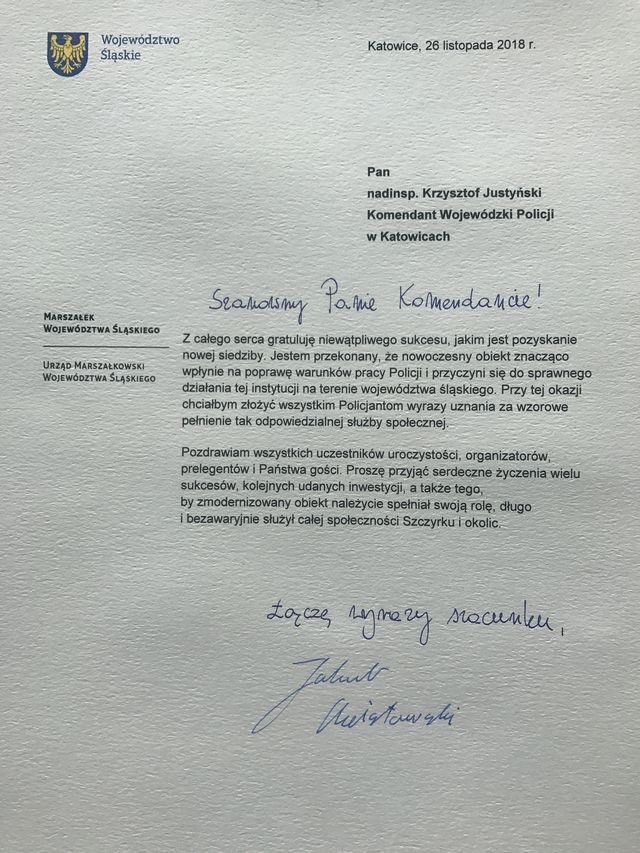 Województwo
Śląskie
Katowice, 26 listopada 2018 r.
Pan
nadinsp. Krzysztof Justyński
Komendant Wojewódzki Policji
w Katowicach
Szanowny Panie Komendancie!
MARSZAŁEK
WOJEWÓDZTWA ŚLĄSKIEGO
URZĄD MARSZAŁKOWSKI
WOJEWÓDZTWA ŚLĄSKIEGO
Z całego serca gratuluję niewątpliwego sukcesu, jakim jest pozyskanie
nowej siedziby. Jestem przekonany, że nowoczesny obiekt znacząco
wpłynie na poprawę warunków pracy Policji i przyczyni się do sprawnego
działania tej instytucji na terenie województwa śląskiego. Przy tej okazji
chciałbym złożyć wszystkim Policjantom wyrazy uznania za wzorowe
pełnienie tak odpowiedzialnej służby społecznej.
Pozdrawiam wszystkich uczestników uroczystości, organizatorów,
prelegentów i Państwa gości. Proszę przyjąć serdeczne życzenia wielu
sukcesów, kolejnych udanych inwestycji, a także tego,
by zmodernizowany obiekt należycie spełniał swoją rolę, długo
i bezawaryjnie służył całej społeczności Szczyrku i okolic.
Łączę wyrazy szacunku,
Jakub
Chełstowski